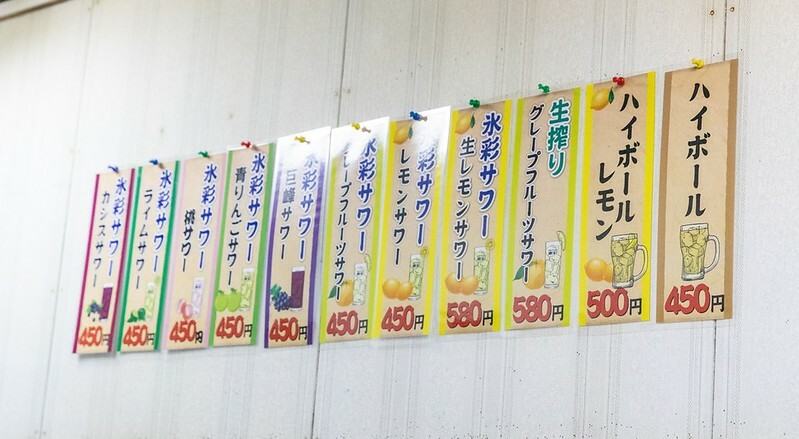 氷彩サワー
カシスサワー
450円
氷彩サワー
ライムサワー
450円
氷彩サワー
桃サワー
450円
氷彩サワー
青りんごサワー
450円
氷彩サワー
巨峰サワー
450円
氷彩サワー
グレープフルーツサワー
450円
氷彩サワー
レモンサワー
450円
氷彩サワー
生レモンサワー
580円
生搾り
グレープフルーツサワー
580円
ハイボール
レモン
500円
ハイボール
450円